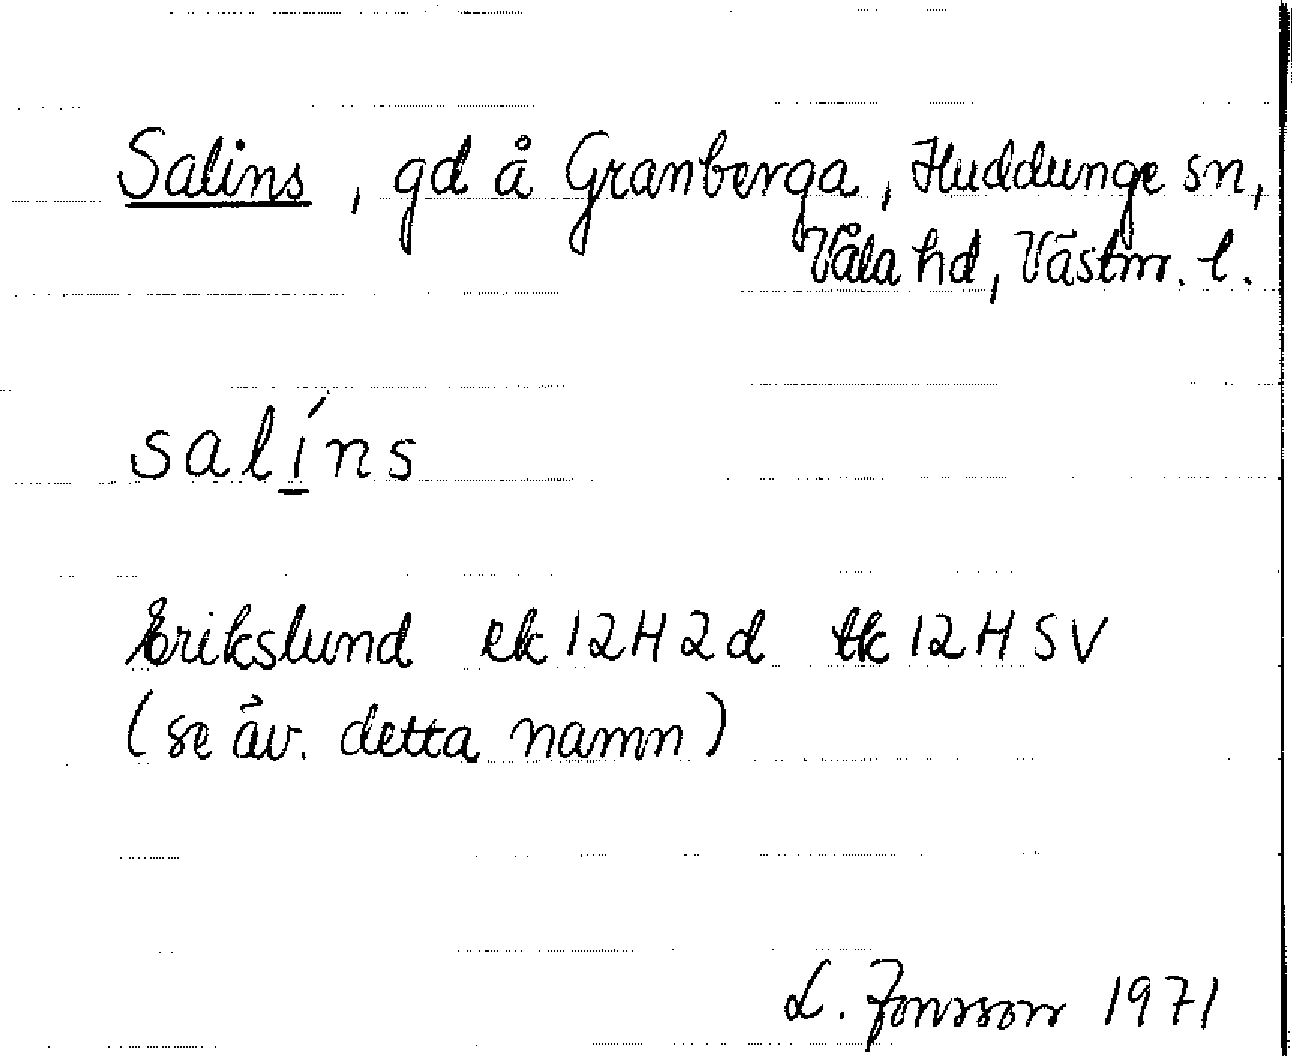 Salins, gd å Granberga, Huddunge sn,
Våla hd, Västm. l.
salíns
Erikslund ek 12H2d tk 12H SV
(se äv. detta namn)
L. Jonsson 1971